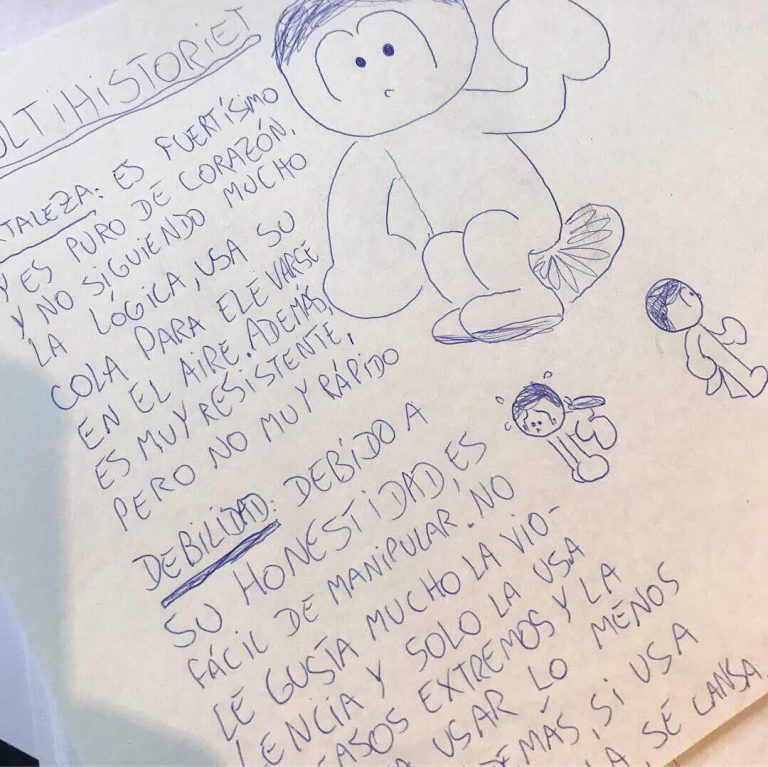 ULTIHISTORIET
RTALEZA: ES FUERTÍSIMO
Y ES PURO DE CORAZÓN,
Y NO SIGUIENDO MUCHO
LA LÓGICA, USA SU
COLA PARA ELEVARSE
EN EL AIRE. ADEMÁS,
ES MUY RESISTENTE,
PERO NO MUY RÁPIDO
DEBILIDAD: DEBIDO A
SU HONESTIDAD, ES
FÁCIL DE MANIPULAR. NO
LE GUSTA MUCHO LA VIO-
LENCIA Y SOLO LA USA
CASOS EXTREMOS Y LA
USAR LO MENOS
DEMÁS, SI USA
SE CANSA